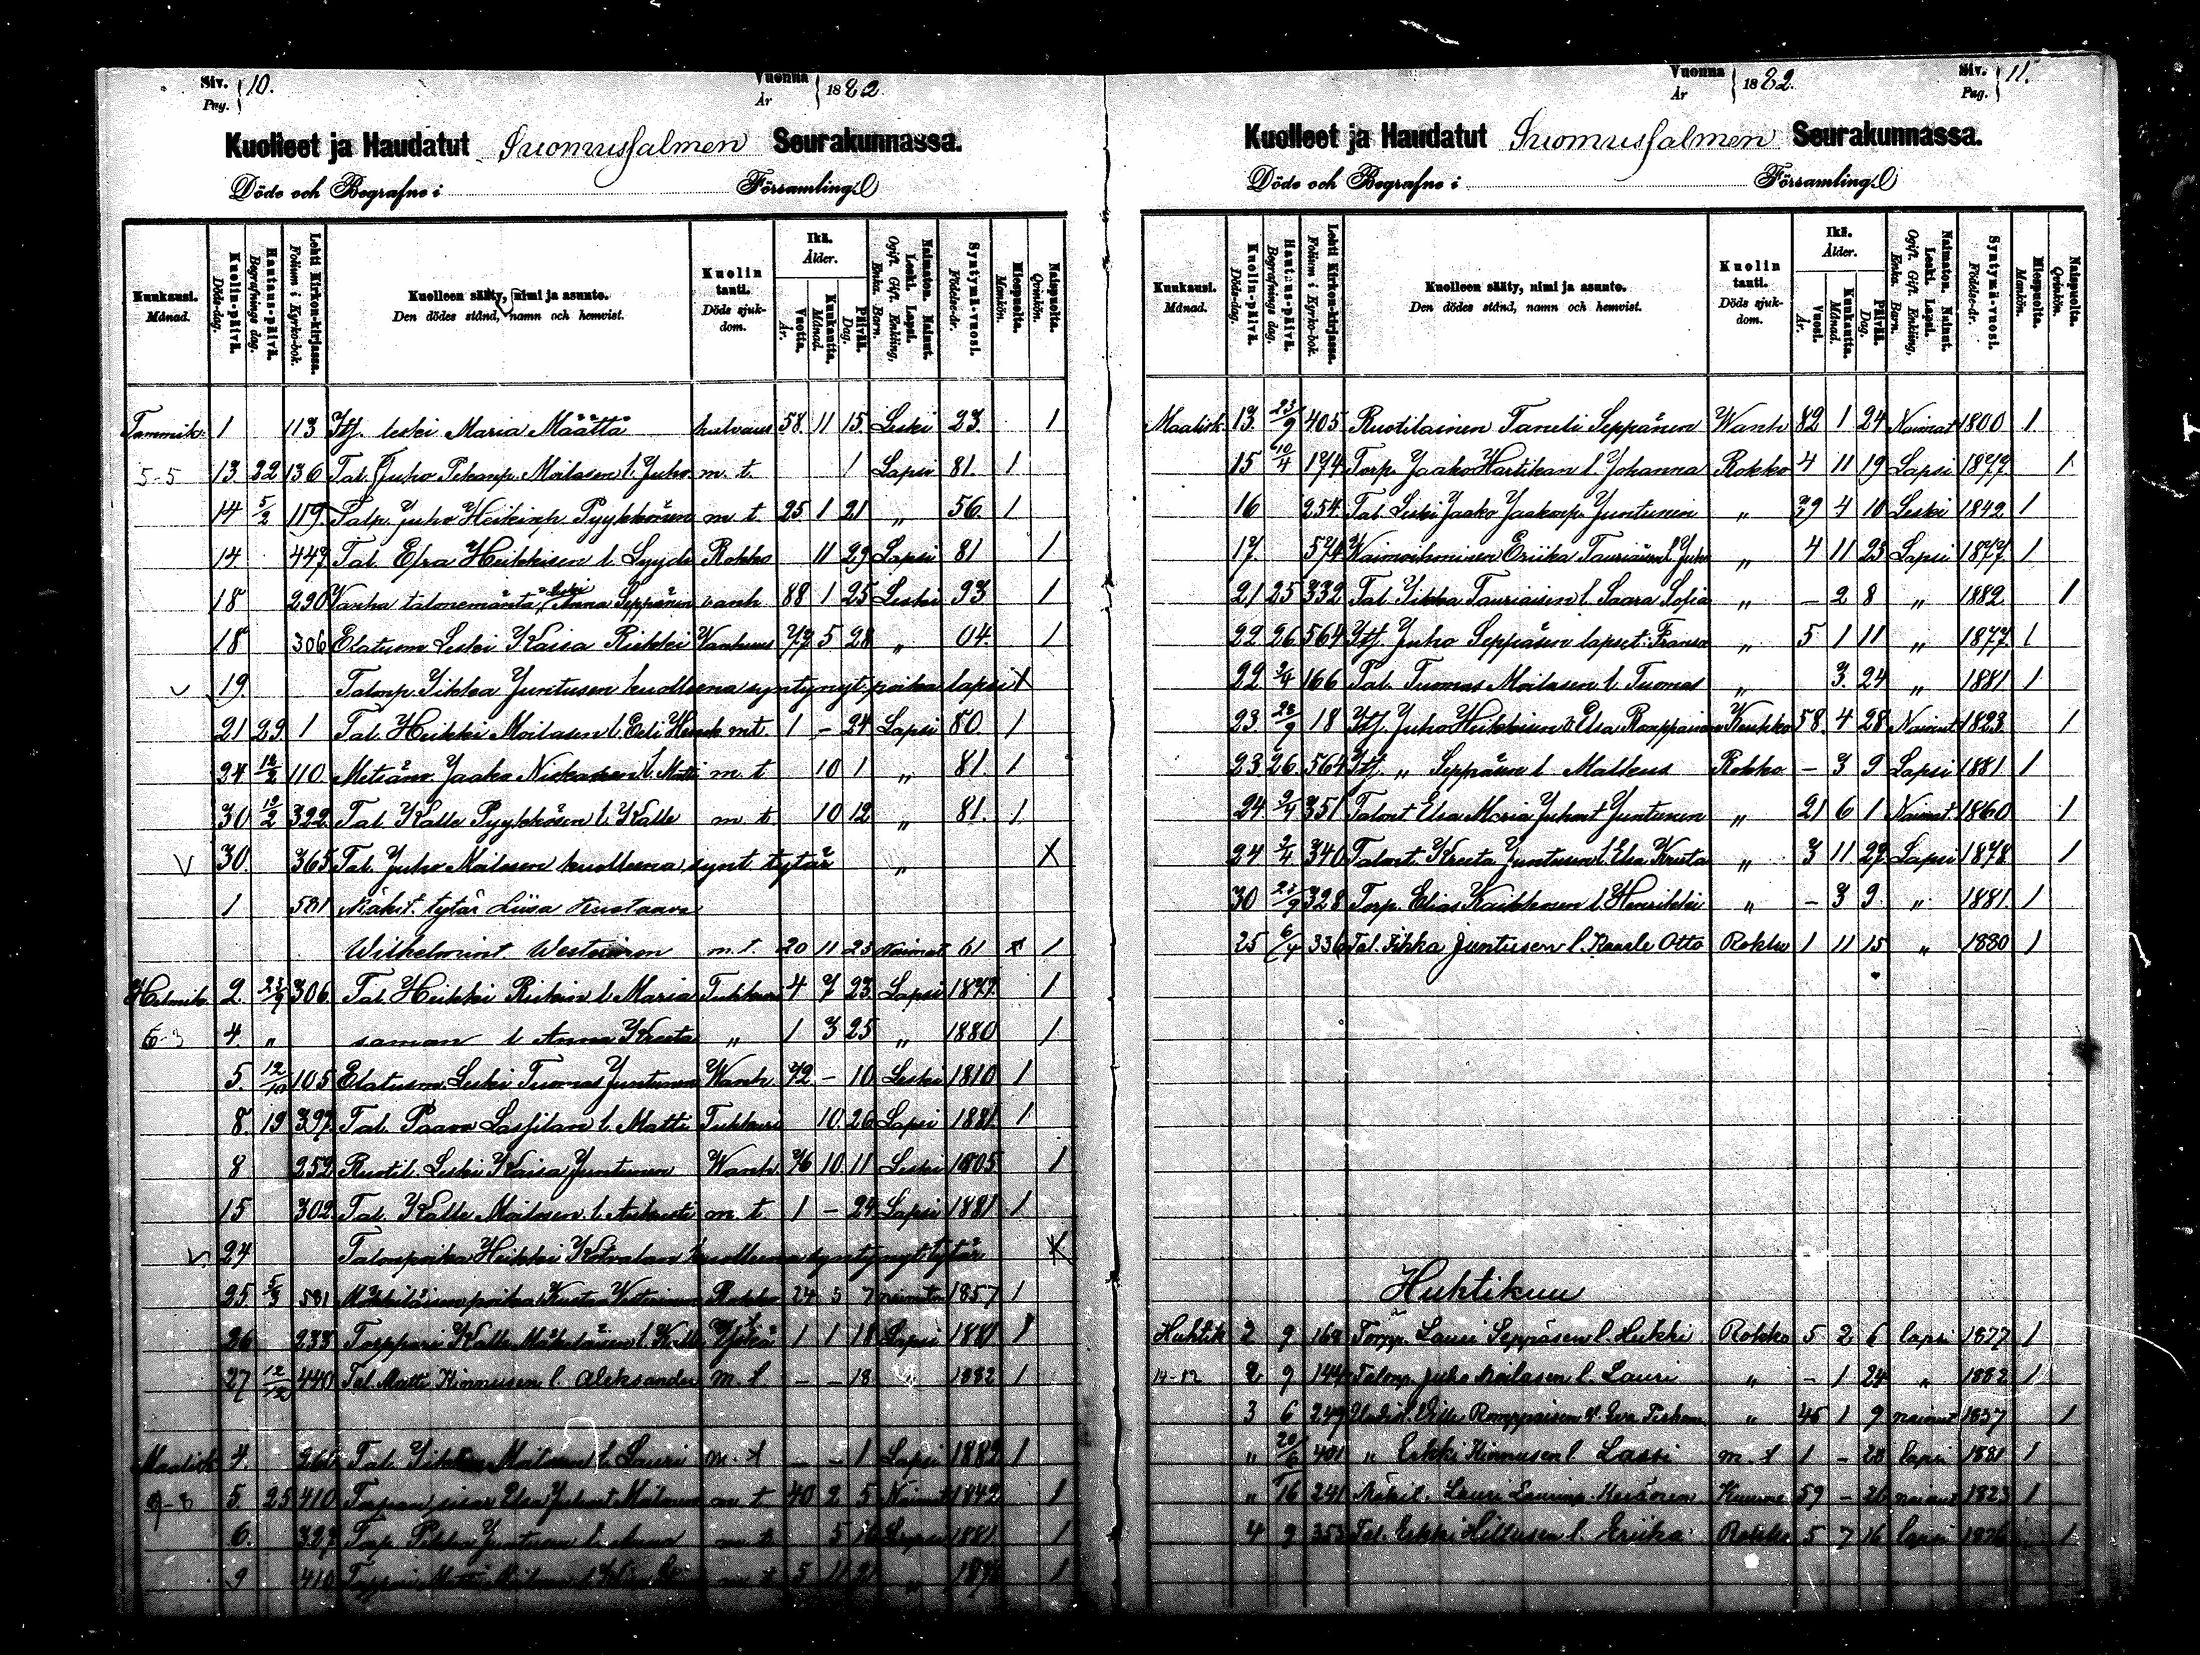 Siv. Pag. 10. Vuonna År 1882
Kuolleet ja Haudatut Suomussalmen Seurakunnassa.
Döde och Begrafne i Församling.
Kuukausi. Månad. Kuolin-päivä. Döds-dag. Hautaus-päivä. Begrafnings dag. Lehti Kirkon-kirjassa. Folium i Kyrko-bok. Kuolleen sääty, nimi ja asunto. Den dödes stånd, namn och hemvist. Kuolin tauti. Döds sjukdom. Ikä. Ålder. Vuotta. År. Kuukautta. Månad. Päivää. Dag. Naimaton. Nainut. Leski. Lapsi. Ogift. Gift. Enkling. Enka. Barn. Syntymä-vuosi. Födelse-år. Miespuolta. Mankön. Naispuolta. Qvinkön.
Tammik. 1 113 Its. leski Maria Määttä halvaus 58 11 15 Leski 23 1
5-5 13 22 136 Tal. Juho Pekanp. Moilasen l. Juho m. t. 1 Lapsi 81. 1
14 5/2 119 Talp. Juho Heikinp. Pyykkönen m. t. 25 1 21 " 56 1
14 447 Tal. Esra Heikkisen l. Lyydi Rokko 11 29 Lapsi 81 1
18 290 Vanha talonemäntä leski Anna Seppänen vanh 88 1 25 Leski 93 1
18 306 Elatusm. Leski Kaisa Riekki Vanhuus 77 5 28 " 04. 1
v 19. Talonp. Iikka Juntusen kuolleena syntynyt poika lapsi X
21 29 1 Tal. Heikki Moilasen l. Eeli Henrik m.t. 1 - 24 Lapsi 80. 1
24 12/2 110 Jaako l. Matti m. t 10 1 " 81. 1
30 19/2 322 Tal. Kalle Pyykkösen l. Kalle m. t. 10 12 " 81. 1
V 30. 365 Tal. Juho Moilasen kuolleena synt. tytär " X
1 581 Mäkit. tytär Liisa Kustaava
Wilhelmint. Westerinen m.t. 20 11 23 Naimat 61 x 1
Helmik. 2. 306 Tal. Heikki Riekin l. Maria Tuhkuri 4 7 23 Lapsi 1877. 1
6-3 4. " saman l. Anna Kreeta " 1 3 25 " 1880 1
5. 105 Elatusm. Leski Tuomas Juntunen Wanh 72 - 10 Leski 1810 1
8. 19 397 Tal. Paavo Lassilan l. Matti Tuhkuri 10. 26 Lapsi 1881. 1
8 252 Ruotil. Leski Kaisa Juntunen Wanh 76 10 11 Leski 1805 1
15 302 Tal. Kalle Moilasen l. m. t. 1 - 24 Lapsi 1881 1
v. 24 Talonpoika Heikki kuolleena syntynyt tytär X
25 5/3 581 Mäkiläisen poika Kusta Westerinen Rokko 24 5 7 naimaton 1857 1
26 233 Torppari Kalle Mäkeläisen l. Kalle 1 1 18 Lapsi 1881 1
27 440 Tal. Matti Kinnusen l. Aleksander m. t. - - 18 1882 1
Maalisk 4. Tal. Iikka Moilasen l. Lauri m. t - - 1 Lapsi 1882 1
9-8 5 25 410 Elsa m. t 40 2 5 Naimat 1842 1
6. 397 Torp. Pekka Juntusen l. Anna m. t 5 Lapsi 1881 1
9 410 m t 5 11 21 " 1
Vuonna År 1882. Siv. Pag. 11.
Kuolleet ja Haudatut Suomussalmen Seurakunnassa.
Döde och Begrafne i Församling.
Kuukausi. Månad. Kuolin-päivä. Döds-dag. Hautaus-päivä. Begrafnings dag. Lehti Kirkon-kirjassa. Folium i Kyrko-bok. Kuolleen sääty, nimi ja asunto. Den dödes stånd, namn och hemvist. Kuolin tauti. Döds sjukdom. Ikä. Ålder. Vuosi. År. Kuukautta. Månad. Päivää. Dag. Naimaton. Nainut. Leski. Lapsi. Ogift. Gift. Enkling. Enka. Barn. Syntymä-vuosi. Födelse-år. Miespuolta. Mankön. Naispuolta. Qvinkön.
Maalisk. 13. 23/9 405 Ruotilainen Taneli Seppänen Wanh 82 1 24 Naimat 1800 1.
15 10/4 174 Torp. Jaako Hartikan l. Johanna Rokko 4 11 19 Lapsi 1877 1.
16 254 Tal. Leski Jaako Jaakonp. Juntunen " 39 4 10 Leski 1842 1
17. 574 Waimoihmisen Eriika Tauriaisen l. Juho " 4 11 23 Lapsi 1877. 1
21 25 332 Tal. Iikka Tauriaisen l. Saara Sofia " - 2 8 " 1882 1
22 26 564 Its. Juho Seppäsen lapset: Fransa " 5 1 11 " 1877. 1
22 2/4 166 Tal. Tuomas Moilasen l. Tuomas " 3. 24 " 1881 1
23 23/9 18 Its. Juho Heikkisen v. Elsa Romppainen Keuhko 58. 4 28 Naimat 1823 1
23 26. 564 Its. " Seppäsen l Matteus Rokko - 3 9 Lapsi 1881 1
24. 2/4 351 Talont. Elsa Maria Juhont. Juntunen " 21 6 1 Naimat. 1860 1
24 2/4 340 Talont. Kreeta Juntusen l. Elsa Kreeta " 3 11 27 Lapsi 1878. 1
30 23/9 328 Torp. Elias Kaikkosen l. Henrikki " - 3 9. " 1881. 1
25 6/4 336 Tal. Iikka Juntusen l. Kaarle Otto Rokko 1 11 15 " 1880 1
Huhtikuu
Huhtik 2 9 164 Torpp. Lauri Seppäsen l. Heikki Rokko 5 2 6 lapsi 1877 1
14-12 2 9 144 Talonp. Juho Moilasen l. Lauri " - 1 24 " 1882 1
3 6 249 Ville Romppaisen v. Eva " 45 1 9 naimat 1837 1
" 20/6 401 " Erkki Kinnusen l. Lassi m. t 1 - 28 lapsi 1881 1
" 16 241 Mäkil. Lauri Laurinp. Keränen Kuume 59 - 26 naimat 1823 1
4 9 353 Tal. Erkki Hiltusen l. Eriika Rokko 5 7 16 lapsi 1876 1